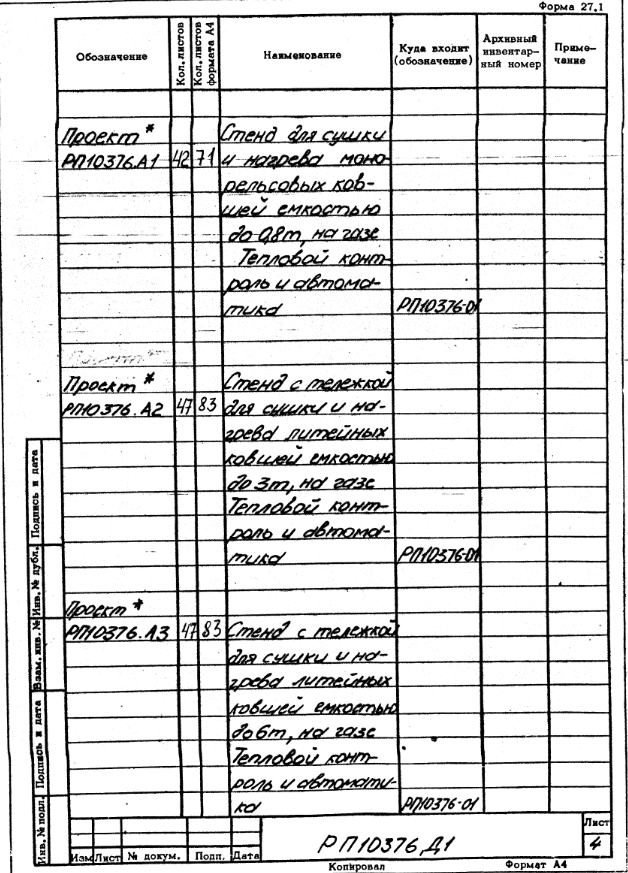 Форма 27.1
Обозначение Кол.листов Кол.листов формата А4 Наименование Куда входит (обозначение) Архивный инвентар- ный номер Приме- чание
Проект * Стенд для сушки
РП10376.А1 42 71 и нагрева моно-
рельсовых ков-
шей емкостью
до 0,8т, на газе
Тепловой конт-
роль и автома-
тика РП10376-01
Проект * Стенд с тележкой
РП10376.А2 47 83 для сушки и на-
грева литейных
ковшей емкостью
до 3т, на газе
Тепловой конт-
роль и автома-
тика РП10376-01
Проект *
РП10376.А3 47 83 Стенд с тележкой
для сушки и на-
грева литейных
ковшей емкостью
до 6т, на газе
Тепловой конт-
роль и автомати-
ка РП10376-01
Инв. № подл. Подпись и дата Взам. инв. № Инв. № дубл. Подпись и дата
РП10376 Д1
Лист
4
Изм Лист № докум. Подп. Дата
Копировал Формат А4